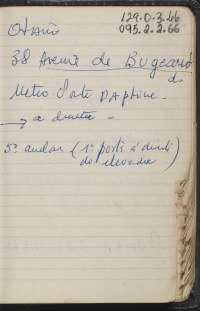 129.0.3.46
095.2.2.66
Otávio
38 Avenue de Bugeaud
d.
Metro Porte Dauphine -
→ a direita -
5º andar (1ª porta à direita
do elevador)